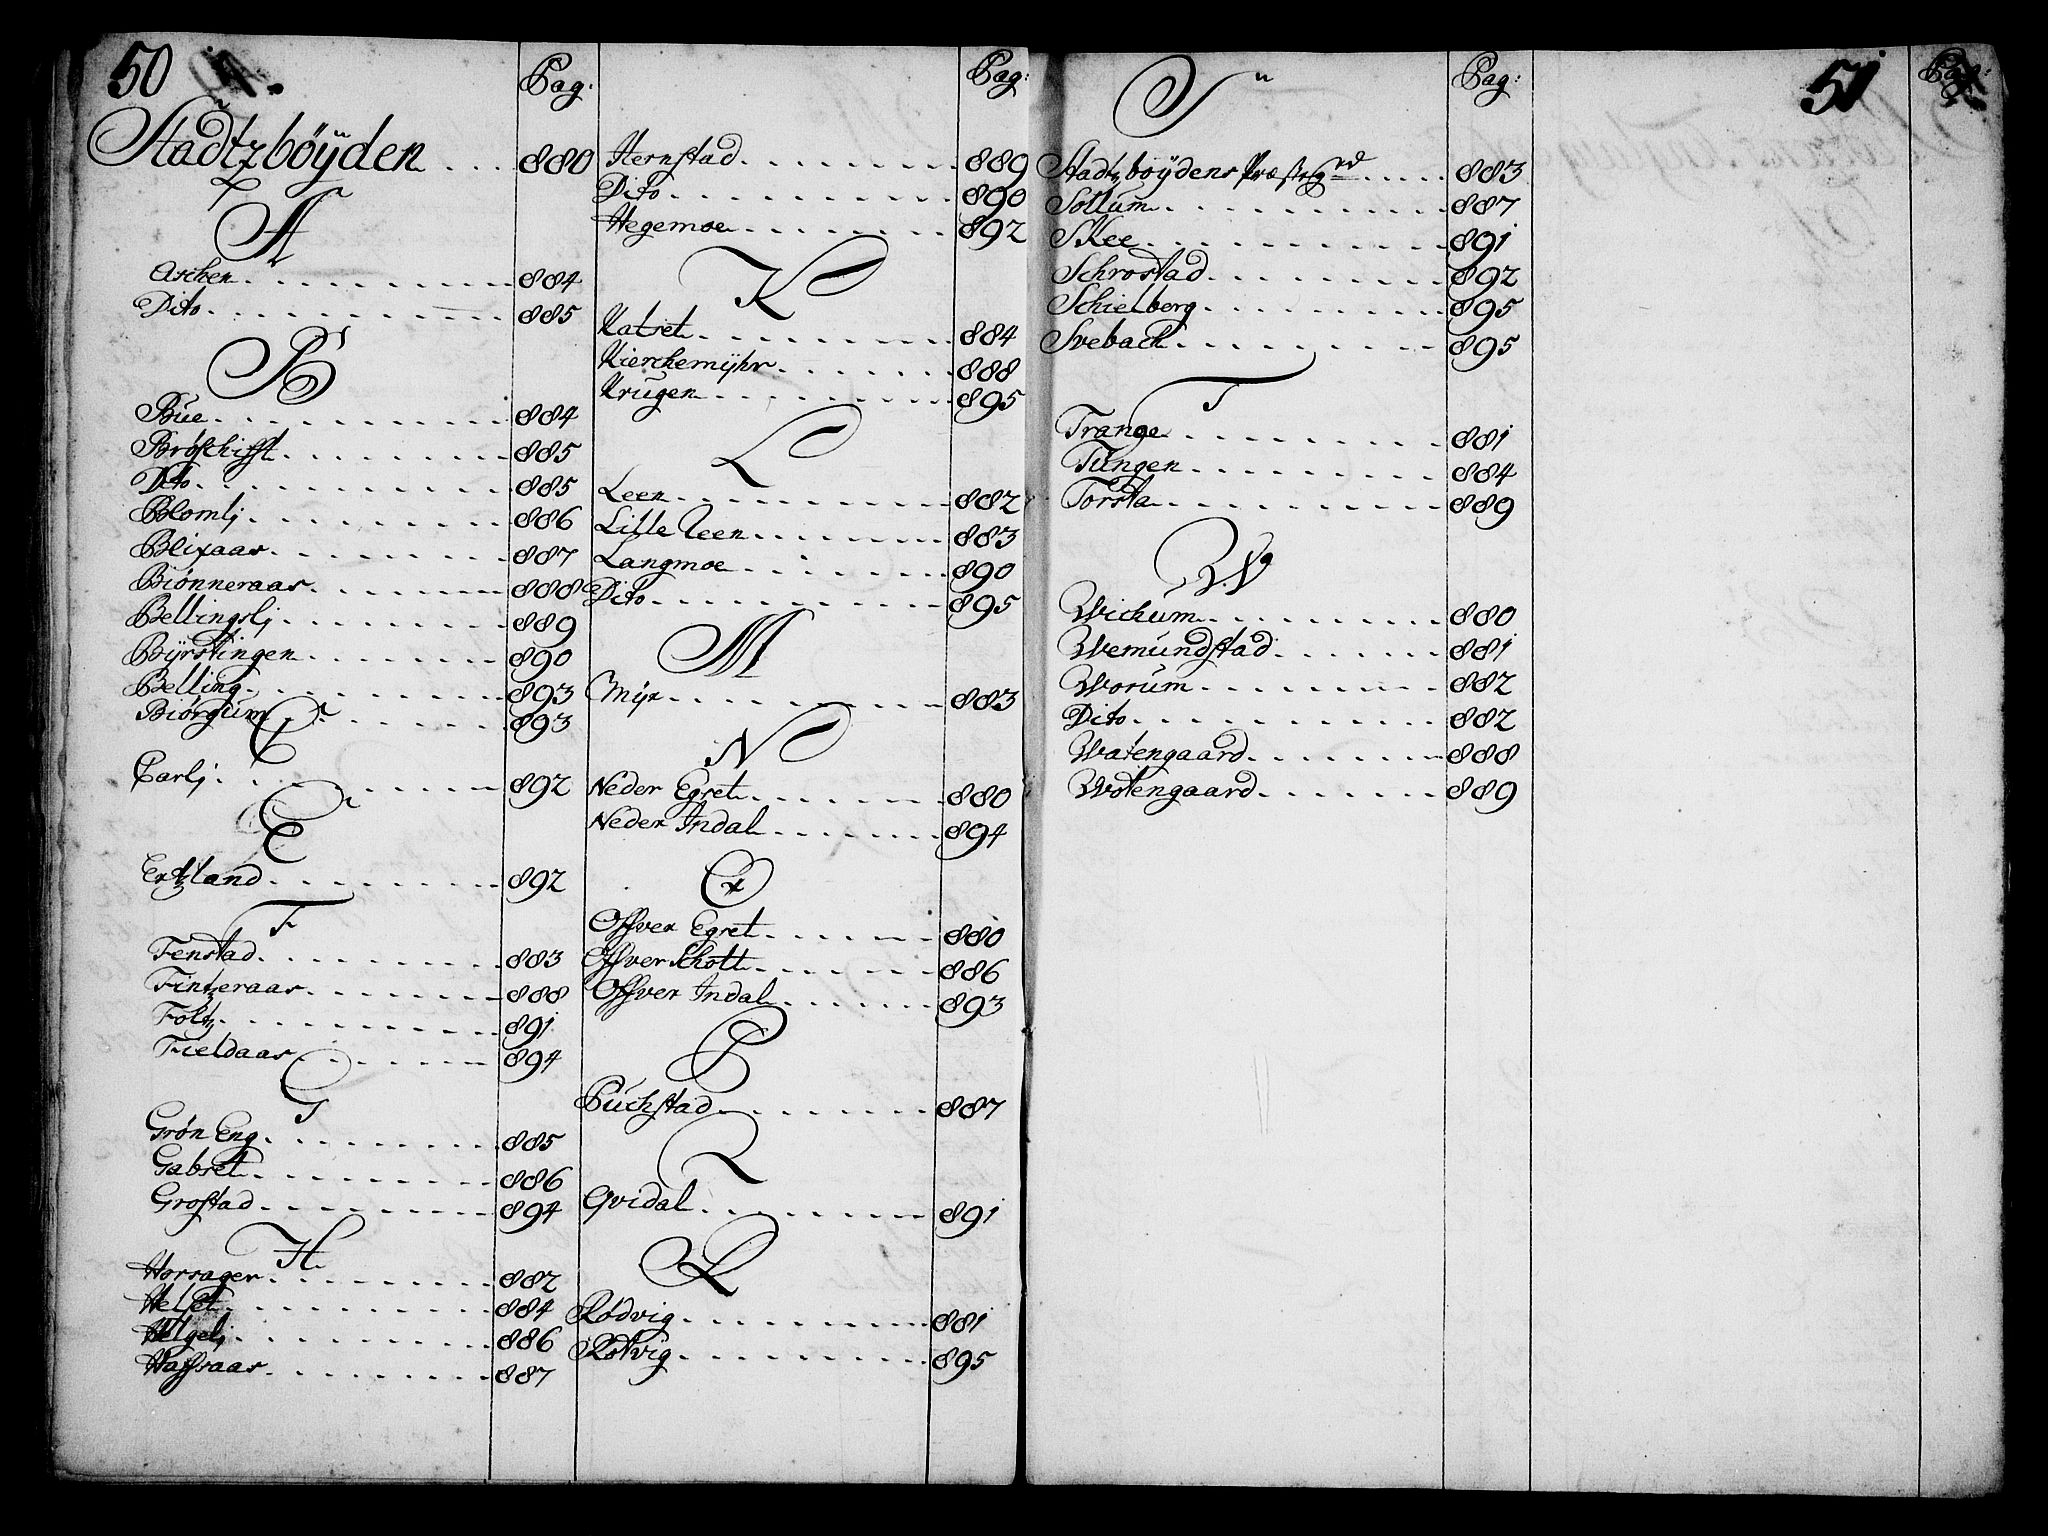 50
Pag:
Stadtzböyden . . . 880
A
Aschen . . . 884
Dito . . . 885
B
Bue . . . 884
Bröschifft . . . 885
Dito . . . 885
Blomlj . . . 886
Blixaas . . . 887
Biönneraas . . . 888
Bellingslj . . . 889
Byrstingen . . . 890
Belling . . . 893
Biörgum . . . 893
C
Carlj . . . 892
E
Ertzland . . . 892
F
Fenstad . . . 883
Fintzeraas . . . 888
Foltz . . . 891
Fieldaas . . . 894
G
Grøn Eng . . . 885
Gabset . . . 886
Grostad . . . 894
H
Horsager . . . 882
Helset . . . 884
Helgelj . . . 886
Haffsaas . . . 887
Pag:
Hernstad . . . 889
Dito . . . 890
Hegemoe . . . 892
K
Katset . . . 884
Kierchemyhr . . . 888
Krugen . . . 895
L
Leen . . . 882
Lille Leen . . . 883
Langmoe . . . 890
Dito . . . 895
M
Myr . . . 883
N
Neder Egret . . . 880
Neder Indal . . . 894
O
Offver Egret . . . 880
Offver Schott . . . 886
Offver Indal . . . 893
P
Puchstad . . . 887
Q
Qvidal . . . 891
R
Rödvig . . . 881
Rotvig . . . 895
Pag:
S
Stadtzböydens Præstegrd . . . 883
Sollum . . . 887
Skee . . . 891
Schrostad . . . 892
Schielberg . . . 895
Svebach . . . 895
T
Trange . . . 881
Tungen . . . 884
Torsta . . . 889
W
Wichum . . . 880
Wemundstad . . . 881
Worum . . . 882
Dito . . . 882
Watengaard . . . 888
Wotengaard . . . 889
51
Pag: